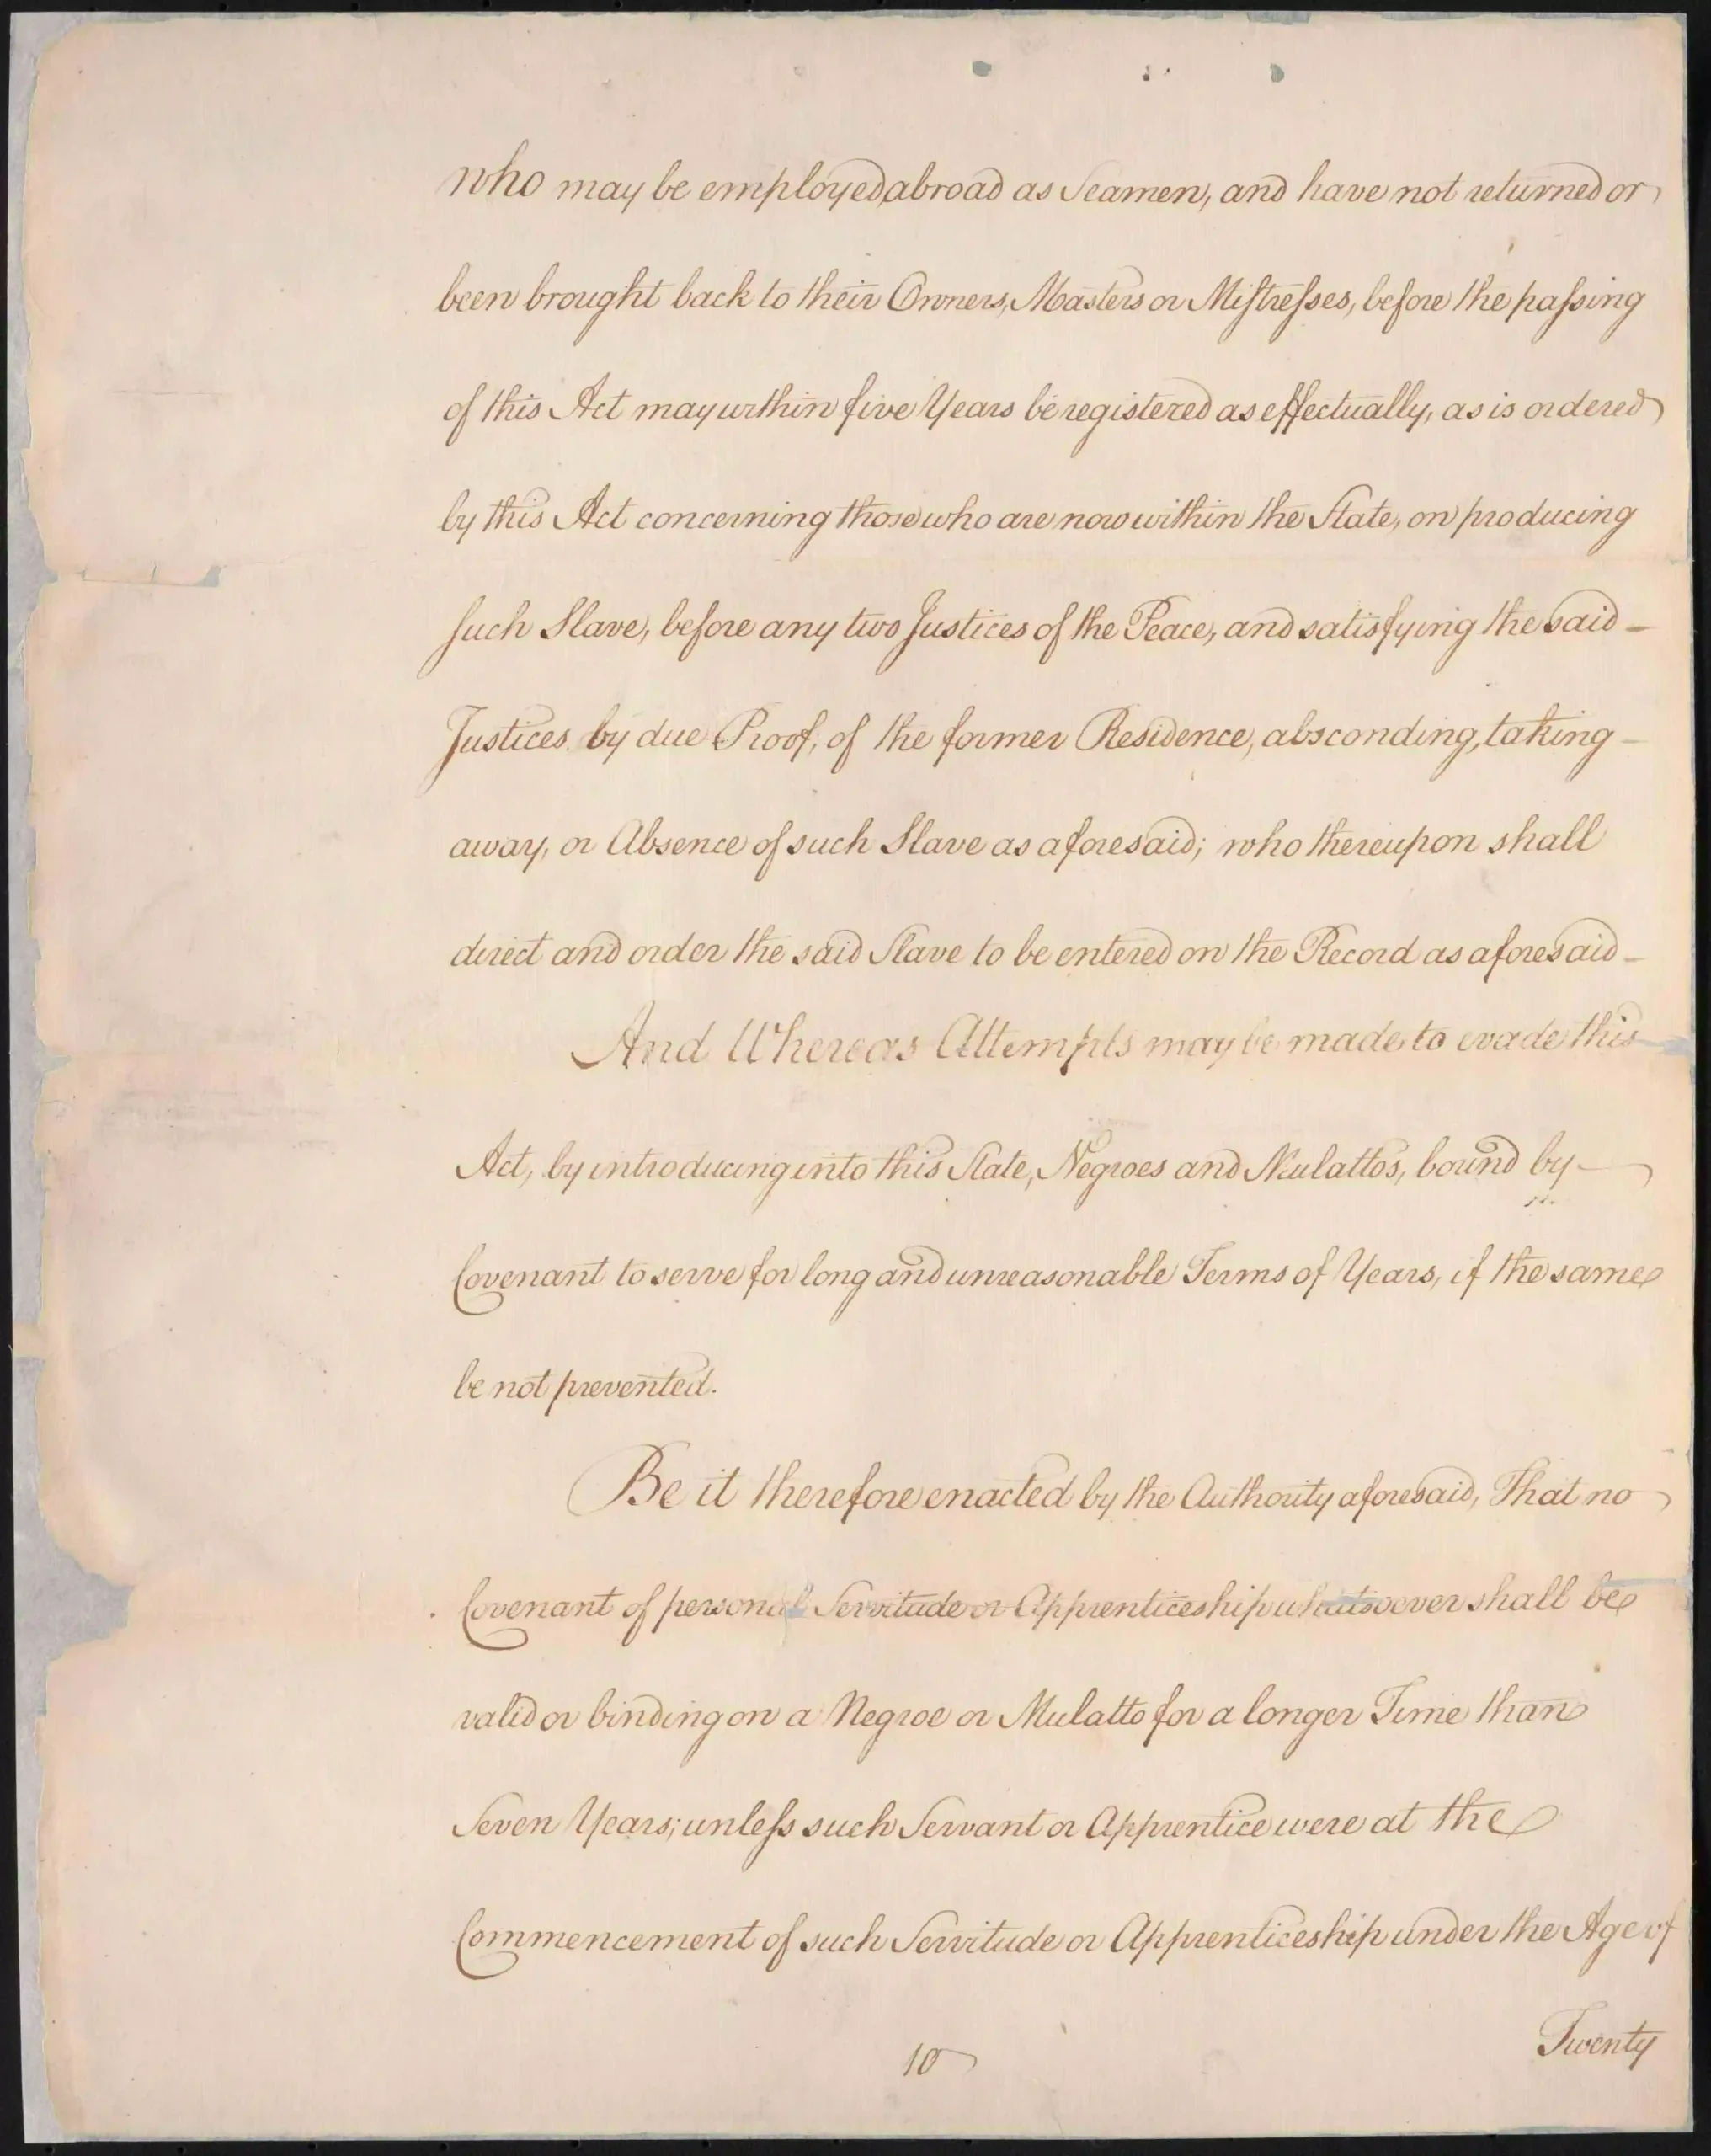 who may be employed abroad as Seamen, and have not returned or
been brought back to their Owners, Masters or Mistresses, before the passing
of this Act may within five Years be registered as effectually, as is ordered
by this Act concerning those who are now within the State, on producing
such Slave, before any two Justices of the Peace, and satisfying the said –
Justices by due Proof, of the former Residence, absconding, taking –
away, or Absence of such Slave as aforesaid; who thereupon shall
direct and order the said Slave to be entered on the Record as aforesaid –
And Whereas Attempts may be made to evade this
Act, by introducing into this State, Negroes and Mulattos, bound by –
Covenant to serve for long and unreasonable Terms of Years, if the same
be not prevented.
Be it therefore enacted by the Authority aforesaid, That no
Covenant of personal Servitude or Apprenticeship whatsoever shall be
valid or binding on a Negroe or Mulatto for a longer Time than
Seven Years; unless such Servant or Apprentice were at the
Commencement of such Servitude or Apprenticeship under the Age of
Twenty
10